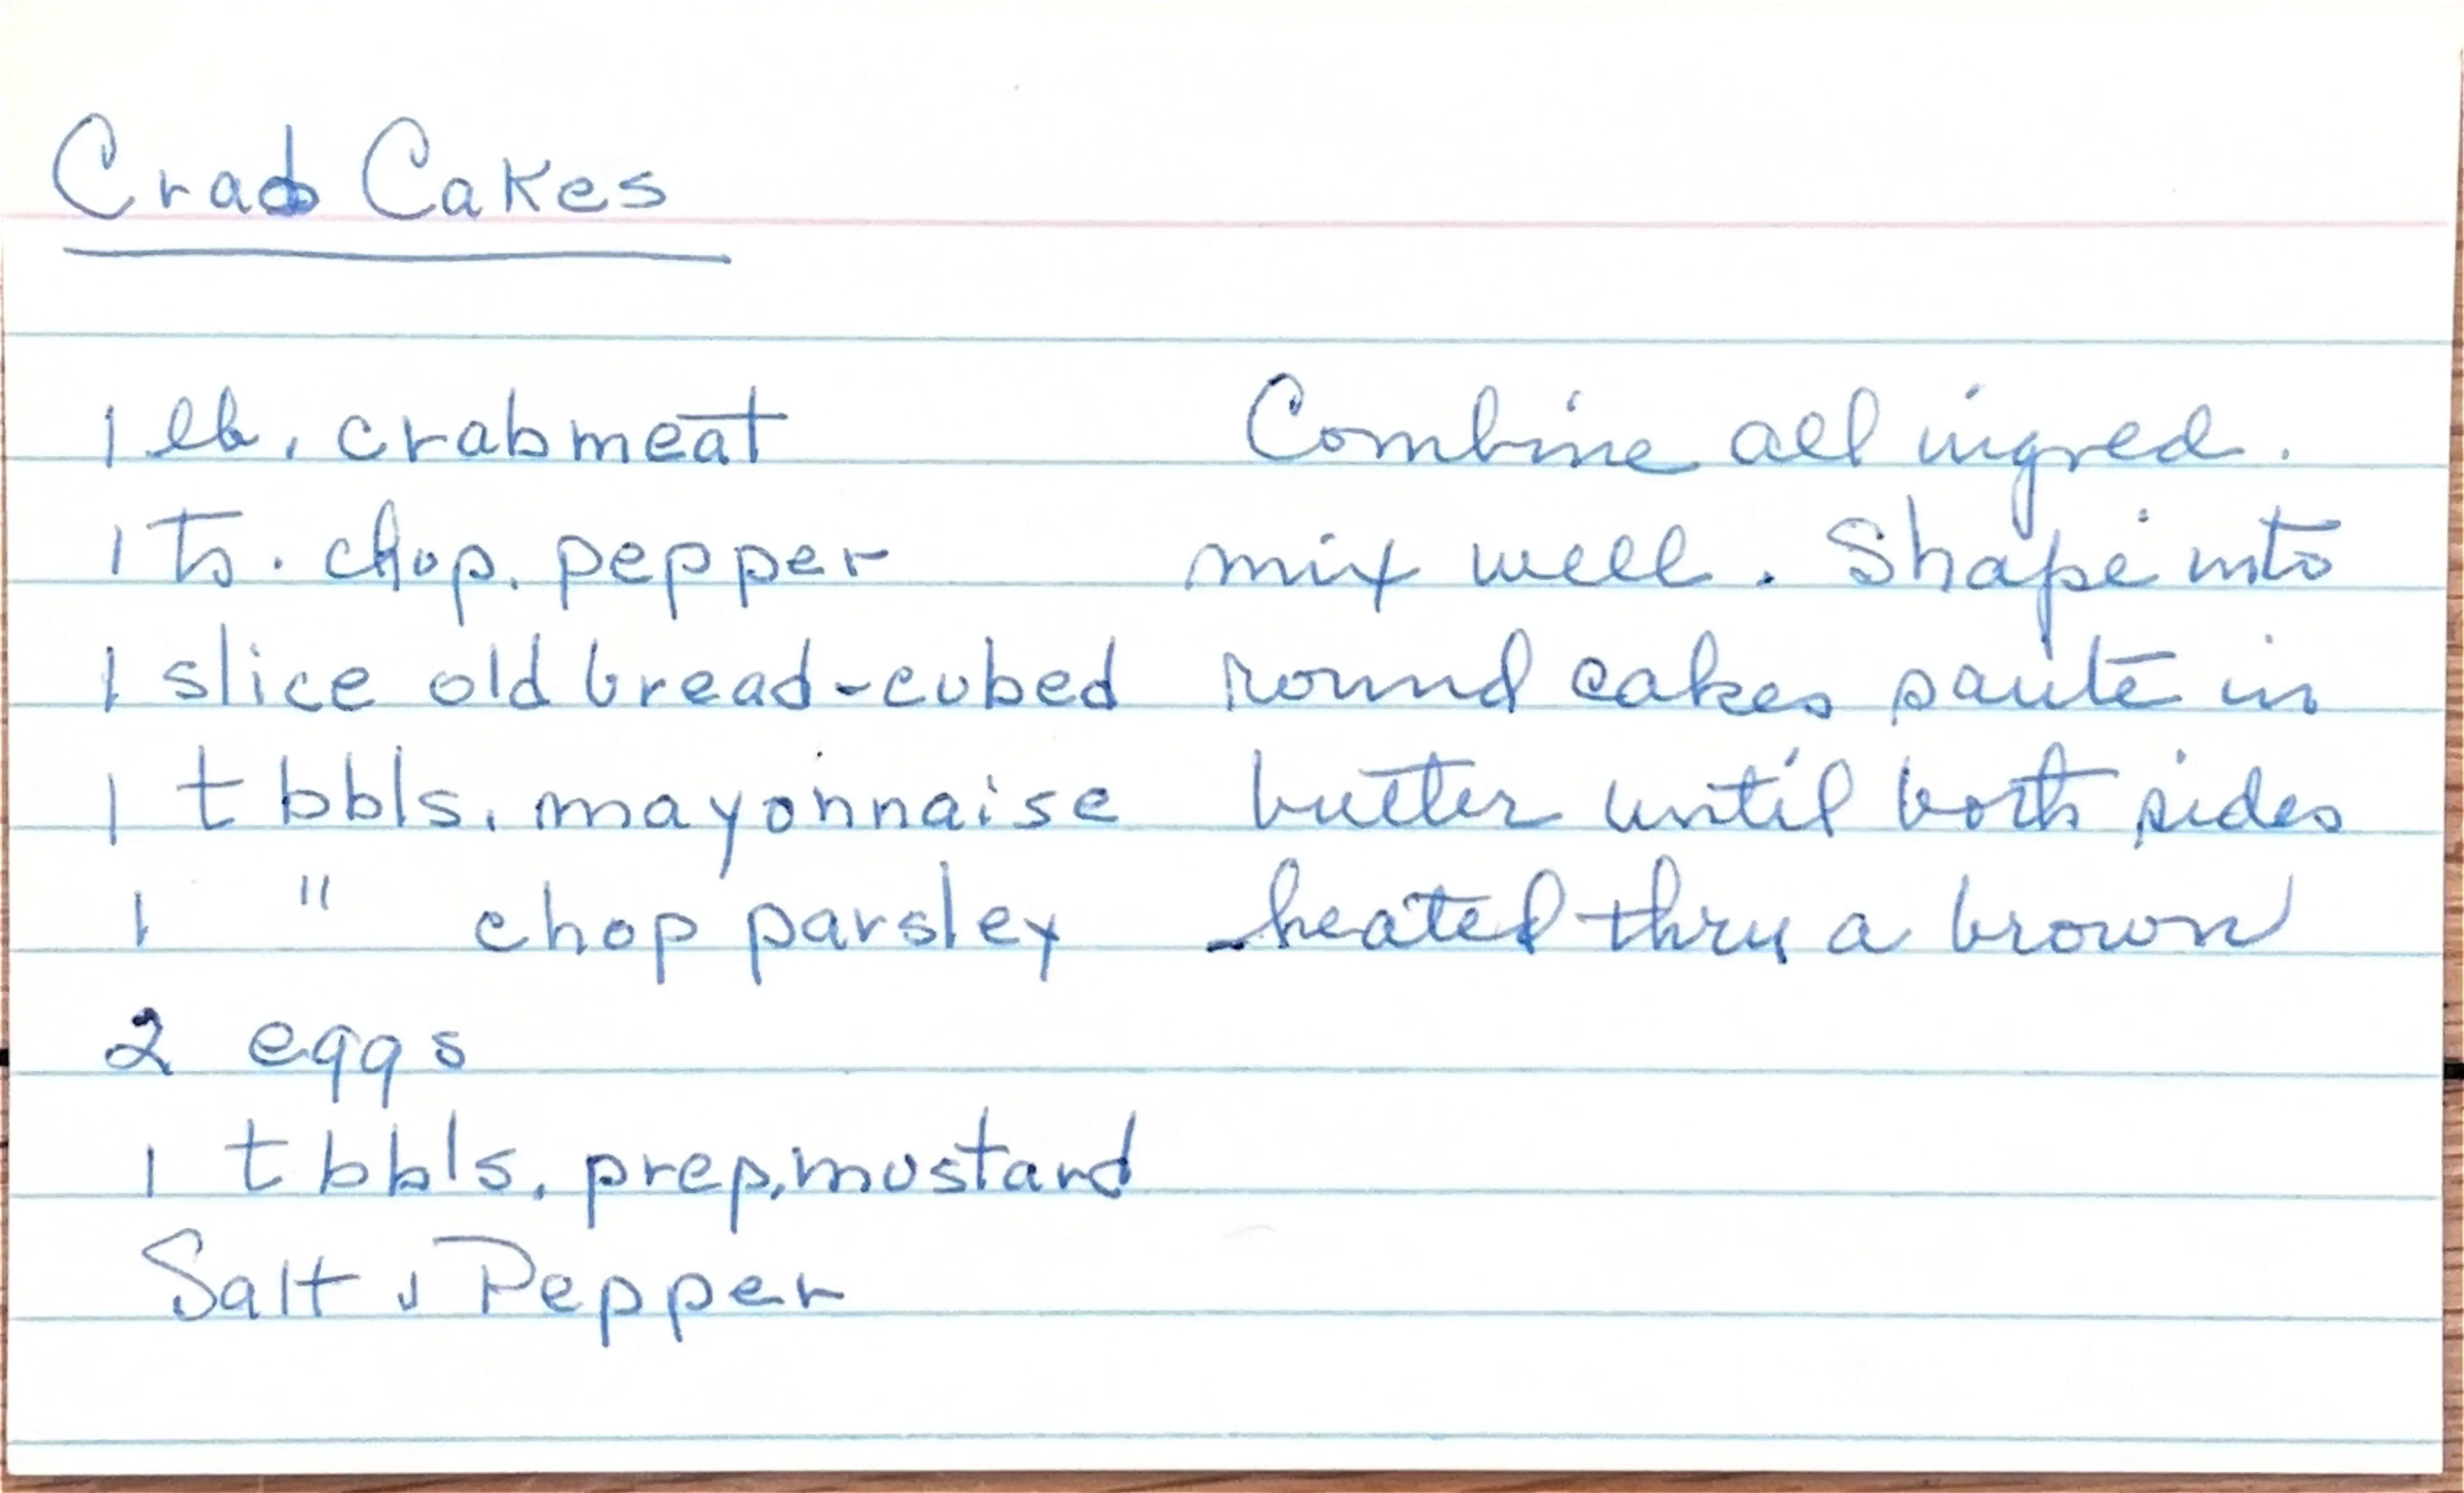 Crab Cakes
1 lb. crabmeat
1 Ts. chop. pepper
1 slice old bread-cubed
1 tbbls. mayonnaise
1 " chop parsley
2 eggs
1 tbbls. prep. mustard
Salt & Pepper
Combine all ingred.
mix well. Shape into
round cakes sauté in
butter until both sides
heated thru a brown